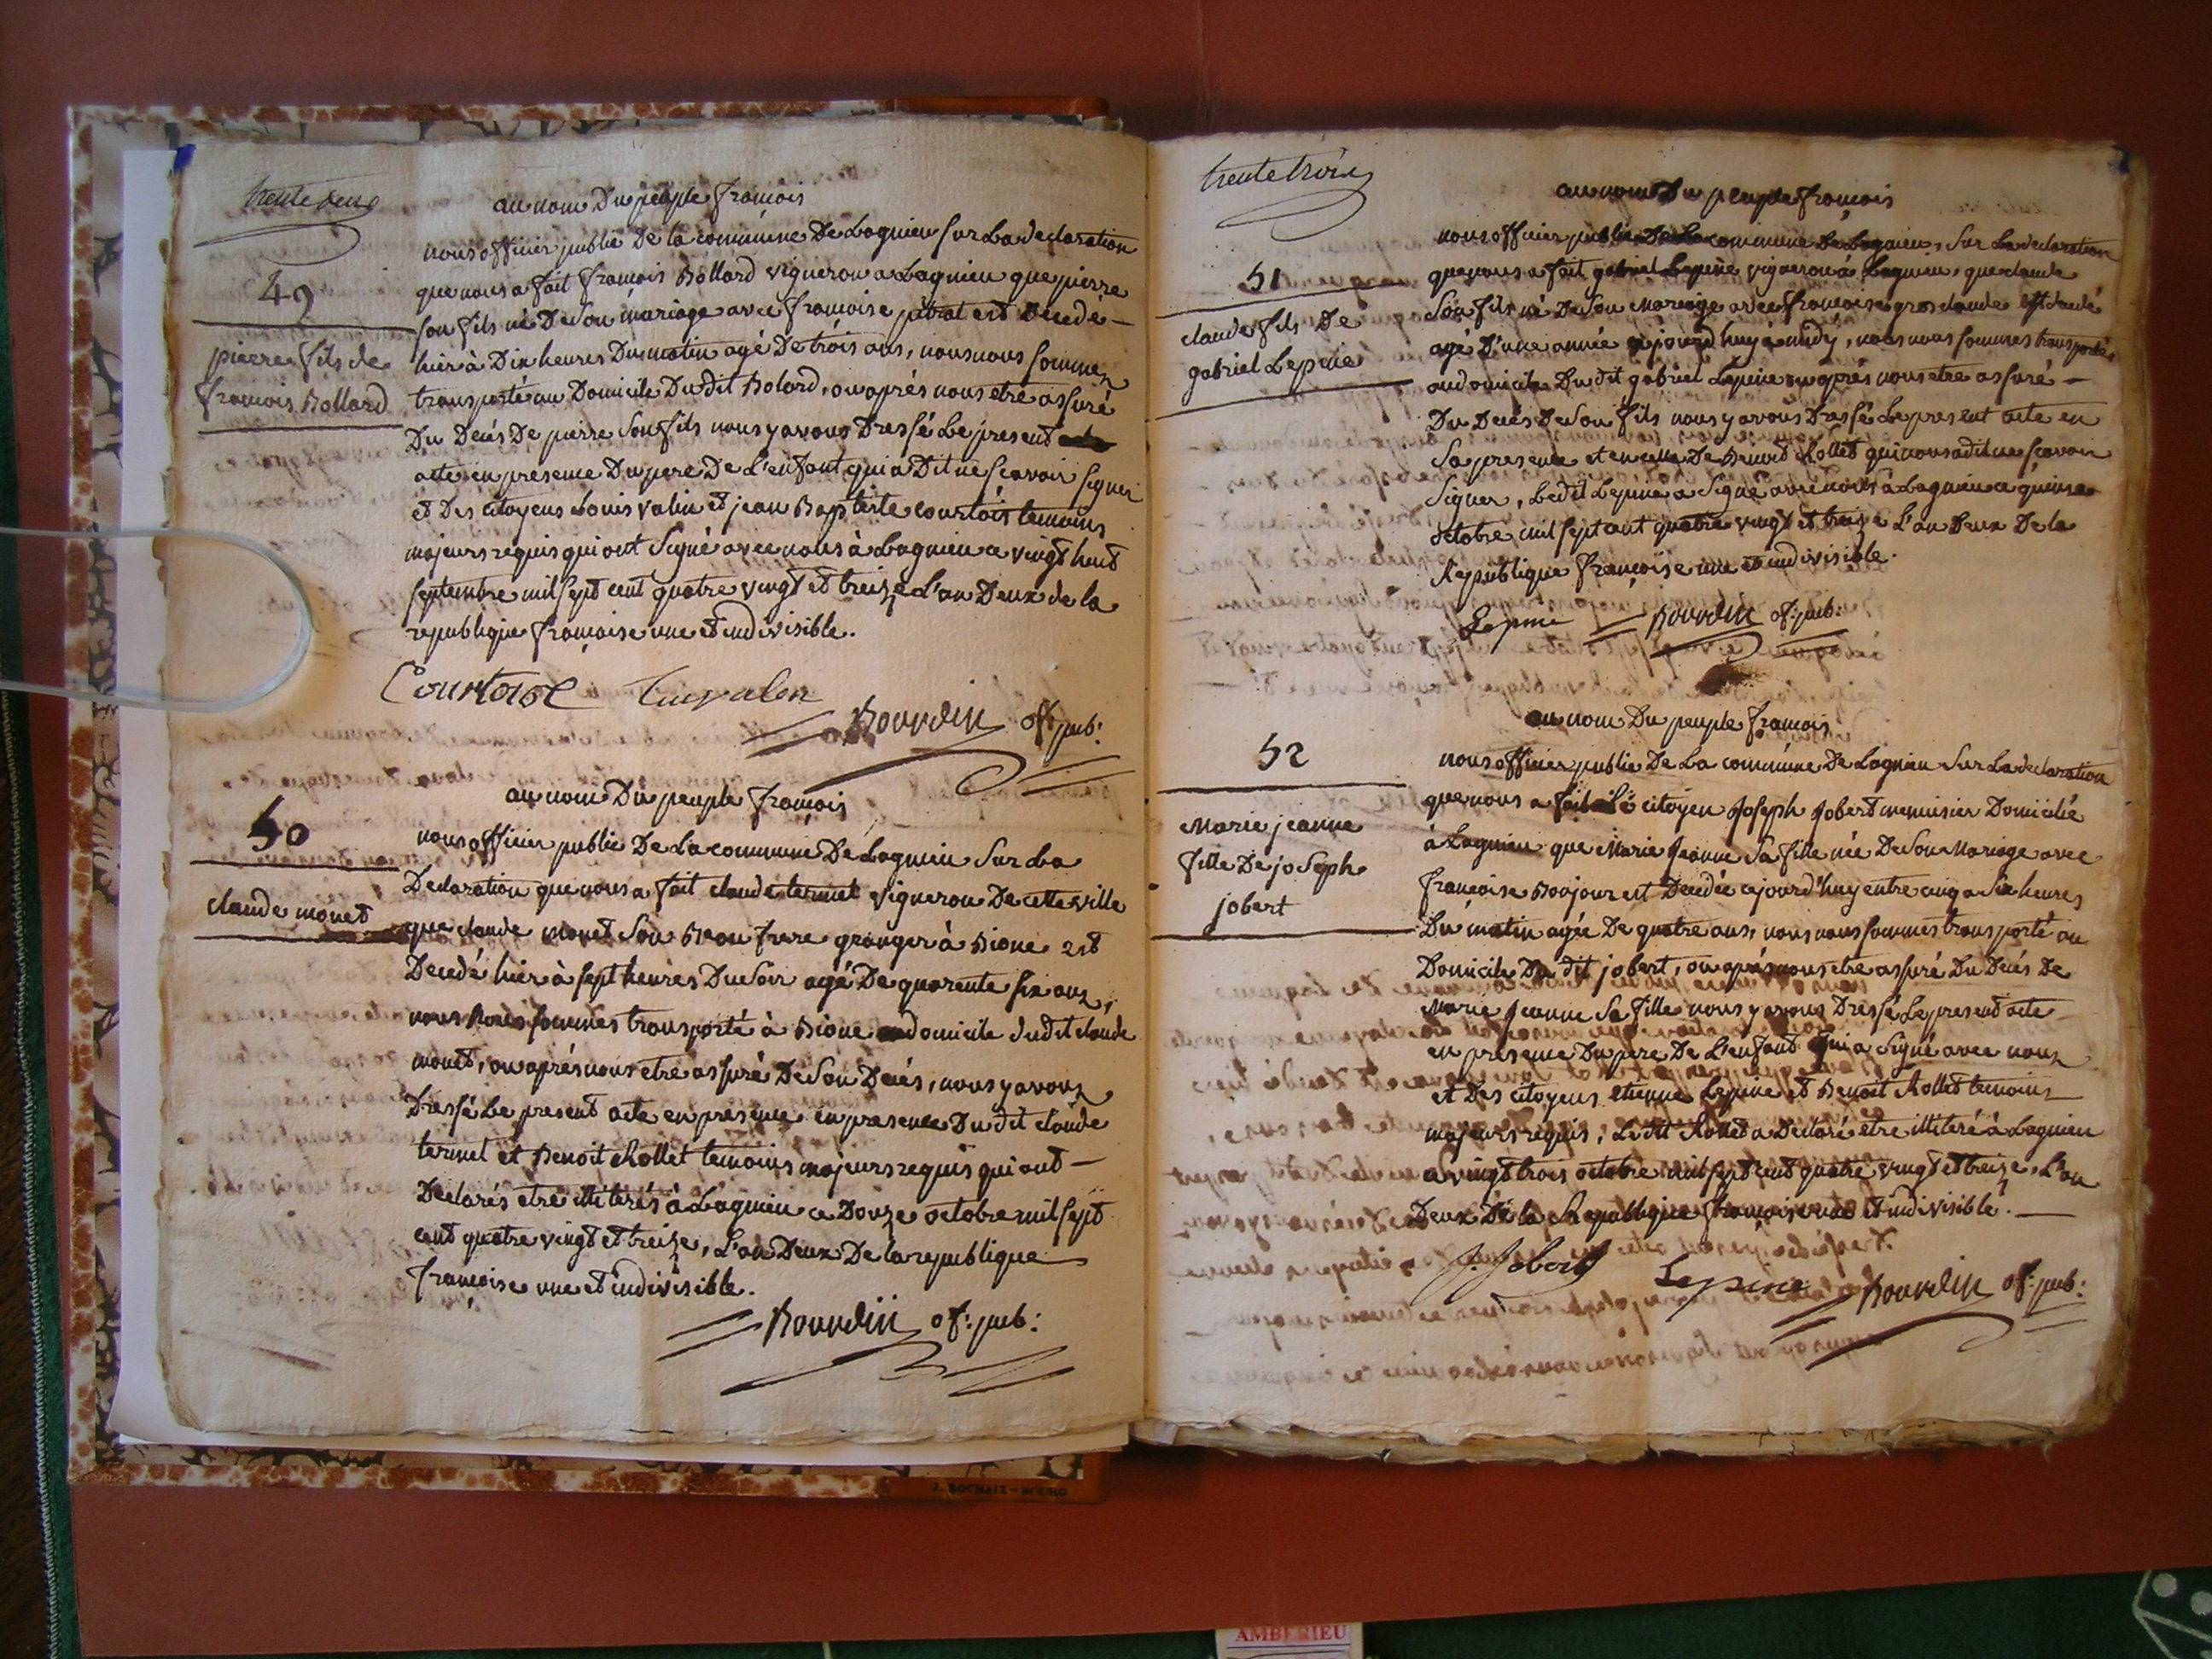 trente deux
au nom Du peuple françois
nous officier public De la commune De Lagnieu sur La declaration
que nous a fait françois Bollard vigneron a Lagnieu que pierre
son fils né De son mariage avec françoise pitrat est Decedé
hier à Dix heures Du matin agé De trois ans, nous nous sommes
transporté au Domicile Du dit Bolard, ou aprés nous etre assuré
Du Decés De pierre son fils nous y avons Dressé Le present
acte en presence Du pere De L'enfant qui a Dit ne scavoir signer
et Des citoyens Louis valin et jean Baptiste courtois temoins
majeurs requis qui ont Signé avec nous à Lagnieu ce vingt huit
septembre mil sept cent quatre vingt et treize L'an Deux de la
republique françoise une et indivisible.
49
pierre fils de
françois Bollard
Courtois
Bourdin of: pub:
au nom Du peuple françois
50
claude monet
nous officier public De La commune De Lagnieu Sur La
Declaration que nous a fait claude termet vigneron De cette ville
que claude monet Son Beau frere granger à Bione est
Decedé hier à sept heures Du soir agé De quarente six ans,
nous nous sommes transporté à Bione au domicile du dit claude
monet, ou aprés nous etre assuré De son Decés, nous y avons
Dressé Le present acte en presence en presence Du dit claude
termet et Benoit Rollet temoins majeurs requis qui ont
Declarés etre illiterés à Lagnieu ce Douze octobre mil sept
cent quatre vingt et treize, L'an Deux De la republique
françoise une et indivisible.
Bourdin of: pub:
trente trois
au nom Du peuple françois
51
claude fils De
gabriel Lepine
nous officier public De La commune De Lagnieu, Sur La declaration
que nous a fait gabriel Lepine vigneron à Lagnieu, que claude
Son fils né De Son Mariage avec françoise gros claude est decedé
agé D'une année ajourd'huy à midy, nous nous sommes transporté
au domicile Du dit gabriel Lepine ou aprés nous etre assuré
Du Decés De Son fils nous y avons Dressé Le present acte en
Sa presence et en celle De Benoit Rollet qui nous a dit ne scavoir
Signer, Le dit Lepine a Signé avec nous à Lagnieu ce quinze
octobre mil sept cent quatre vingt et treize L'an Deux De la
Republique françoise une et indivisible.
Lepine Bourdin of: pub:
au nom Du peuple françois
52
Marie jeanne
fille De joseph
jobert
nous officier public De La commune De Lagnieu Sur La declaration
que nous a fait Le citoyen Joseph Jobert menuisier Domicilié
à Lagnieu que Marie Jeanne Sa fille née De Son Mariage avec
françoise Bonjour est Decedée cejourd'huy entre cinq a Six heures
Du matin agée De quatre ans, nous nous sommes transporté au
Domicile Du dit jobert, ou aprés nous etre assuré Du Decés De
Marie Jeanne Sa fille nous y avons Dressé Le present acte
en presence Du pere De L'enfant qui a Signé avec nous
et Des citoyens etienne Lepine et Benoit Rollet temoins
majeurs requis, Le dit Rollet a Declaré etre illiteré à Lagnieu
ce vingt trois octobre mil sept cent quatre vingt et treize, L'an
Deux De la Republique françoise une et indivisible.
J. Jobert Lepine Bourdin of: pub:
J. ROCHAIX - BOURG
AMBERIEU